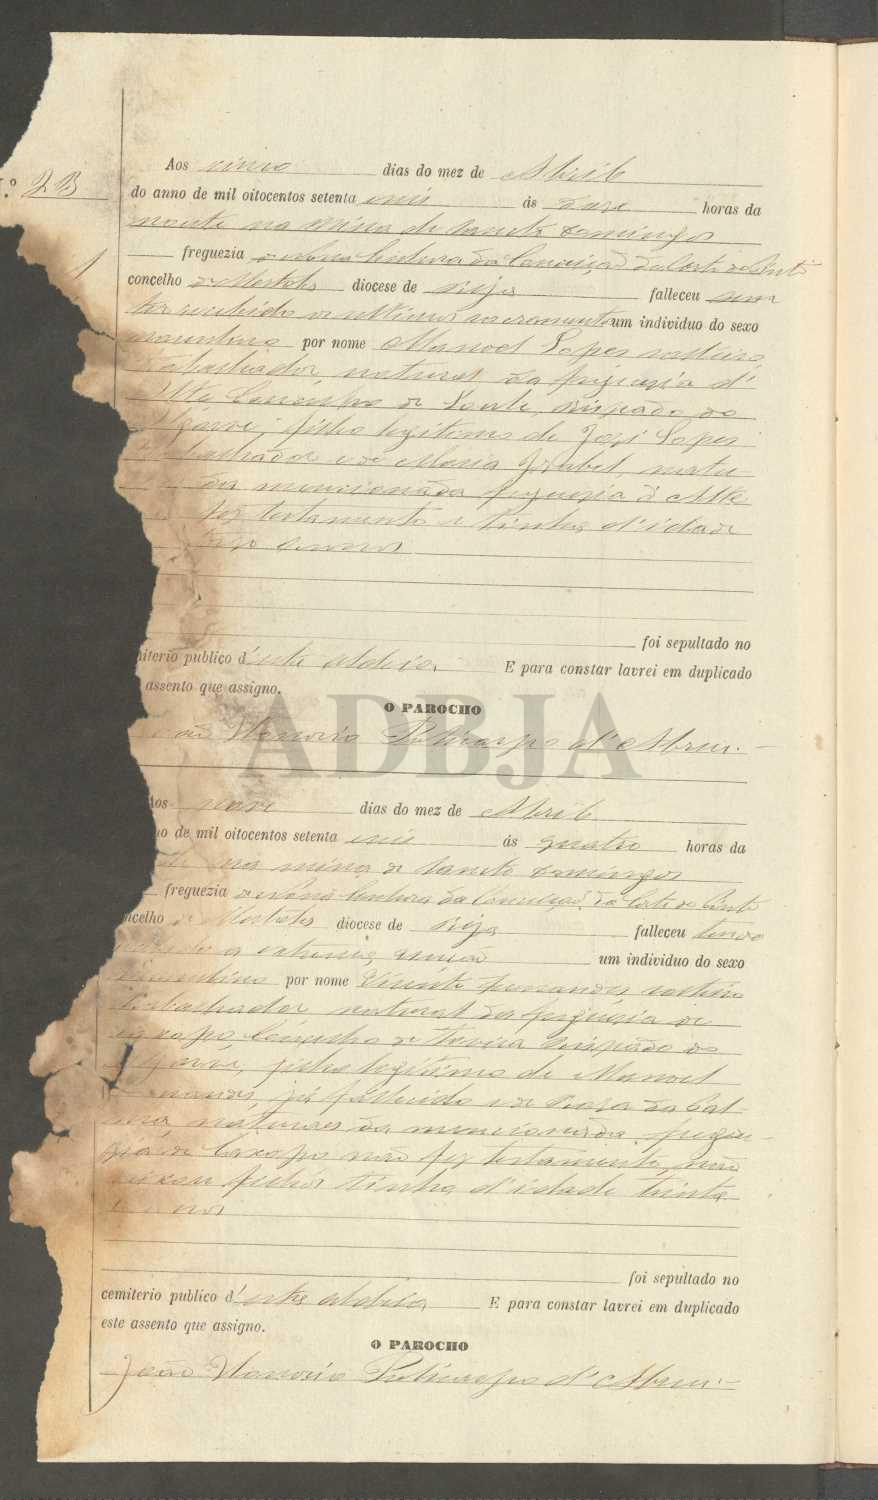 Aos cinco dias do mez de Abril
Nº 23
do anno de mil oitocentos setenta e seis ás horas da
noute na Mina de Sancto Domingos
freguezia de Nossa Senhora da Conceição da Corte do Pinto
concelho de Mertola diocese de Beja falleceu sem
ter recebido os ultimos sacramentos um individuo do sexo
masculino por nome Manoel Lopes solteiro
trabalhador natural da freguesia d'
Alte Concelho de Loulé, Bispado do
Algarve, filho legitimo de José Lopes
trabalhador e de Maria Izabel, natu-
da mencionada freguesia d'Alte
fez testamento e tinha d'idade
annos
foi sepultado no
miterio publico d'esta aldeia. E para constar lavrei em duplicado
assento que assigno.
O PAROCHO
João Honorio Policarpo d'Abreu.
ADBJA
Aos nove dias do mez de Abril
no de mil oitocentos setenta e seis ás quatro horas da
na mina de Sancto Domingos
freguezia de Nossa Senhora da Conceição da Corte do Pinto
oncelho de Mertola diocese de Beja falleceu tendo
recebido a extrema unção um individuo do sexo
masculino por nome Vicente Fernandes solteiro
trabalhador natural da freguesia de
Caxopo, Concelho de Tavira Bispado do
Algarve, filho legitimo de Manoel
Fernandes, já fallecido e de Roza da Pal-
naturaes da mencionada fregue-
zia de Caxopo não fez testamento, não
deixou filhos tinha d'idade trinta
annos
foi sepultado no
cemiterio publico d'esta aldeia E para constar lavrei em duplicado
este assento que assigno.
O PAROCHO
João Honorio Policarpo d'Abreu.